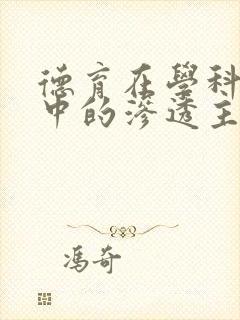 德育在學科
中的滲透主
馮奇